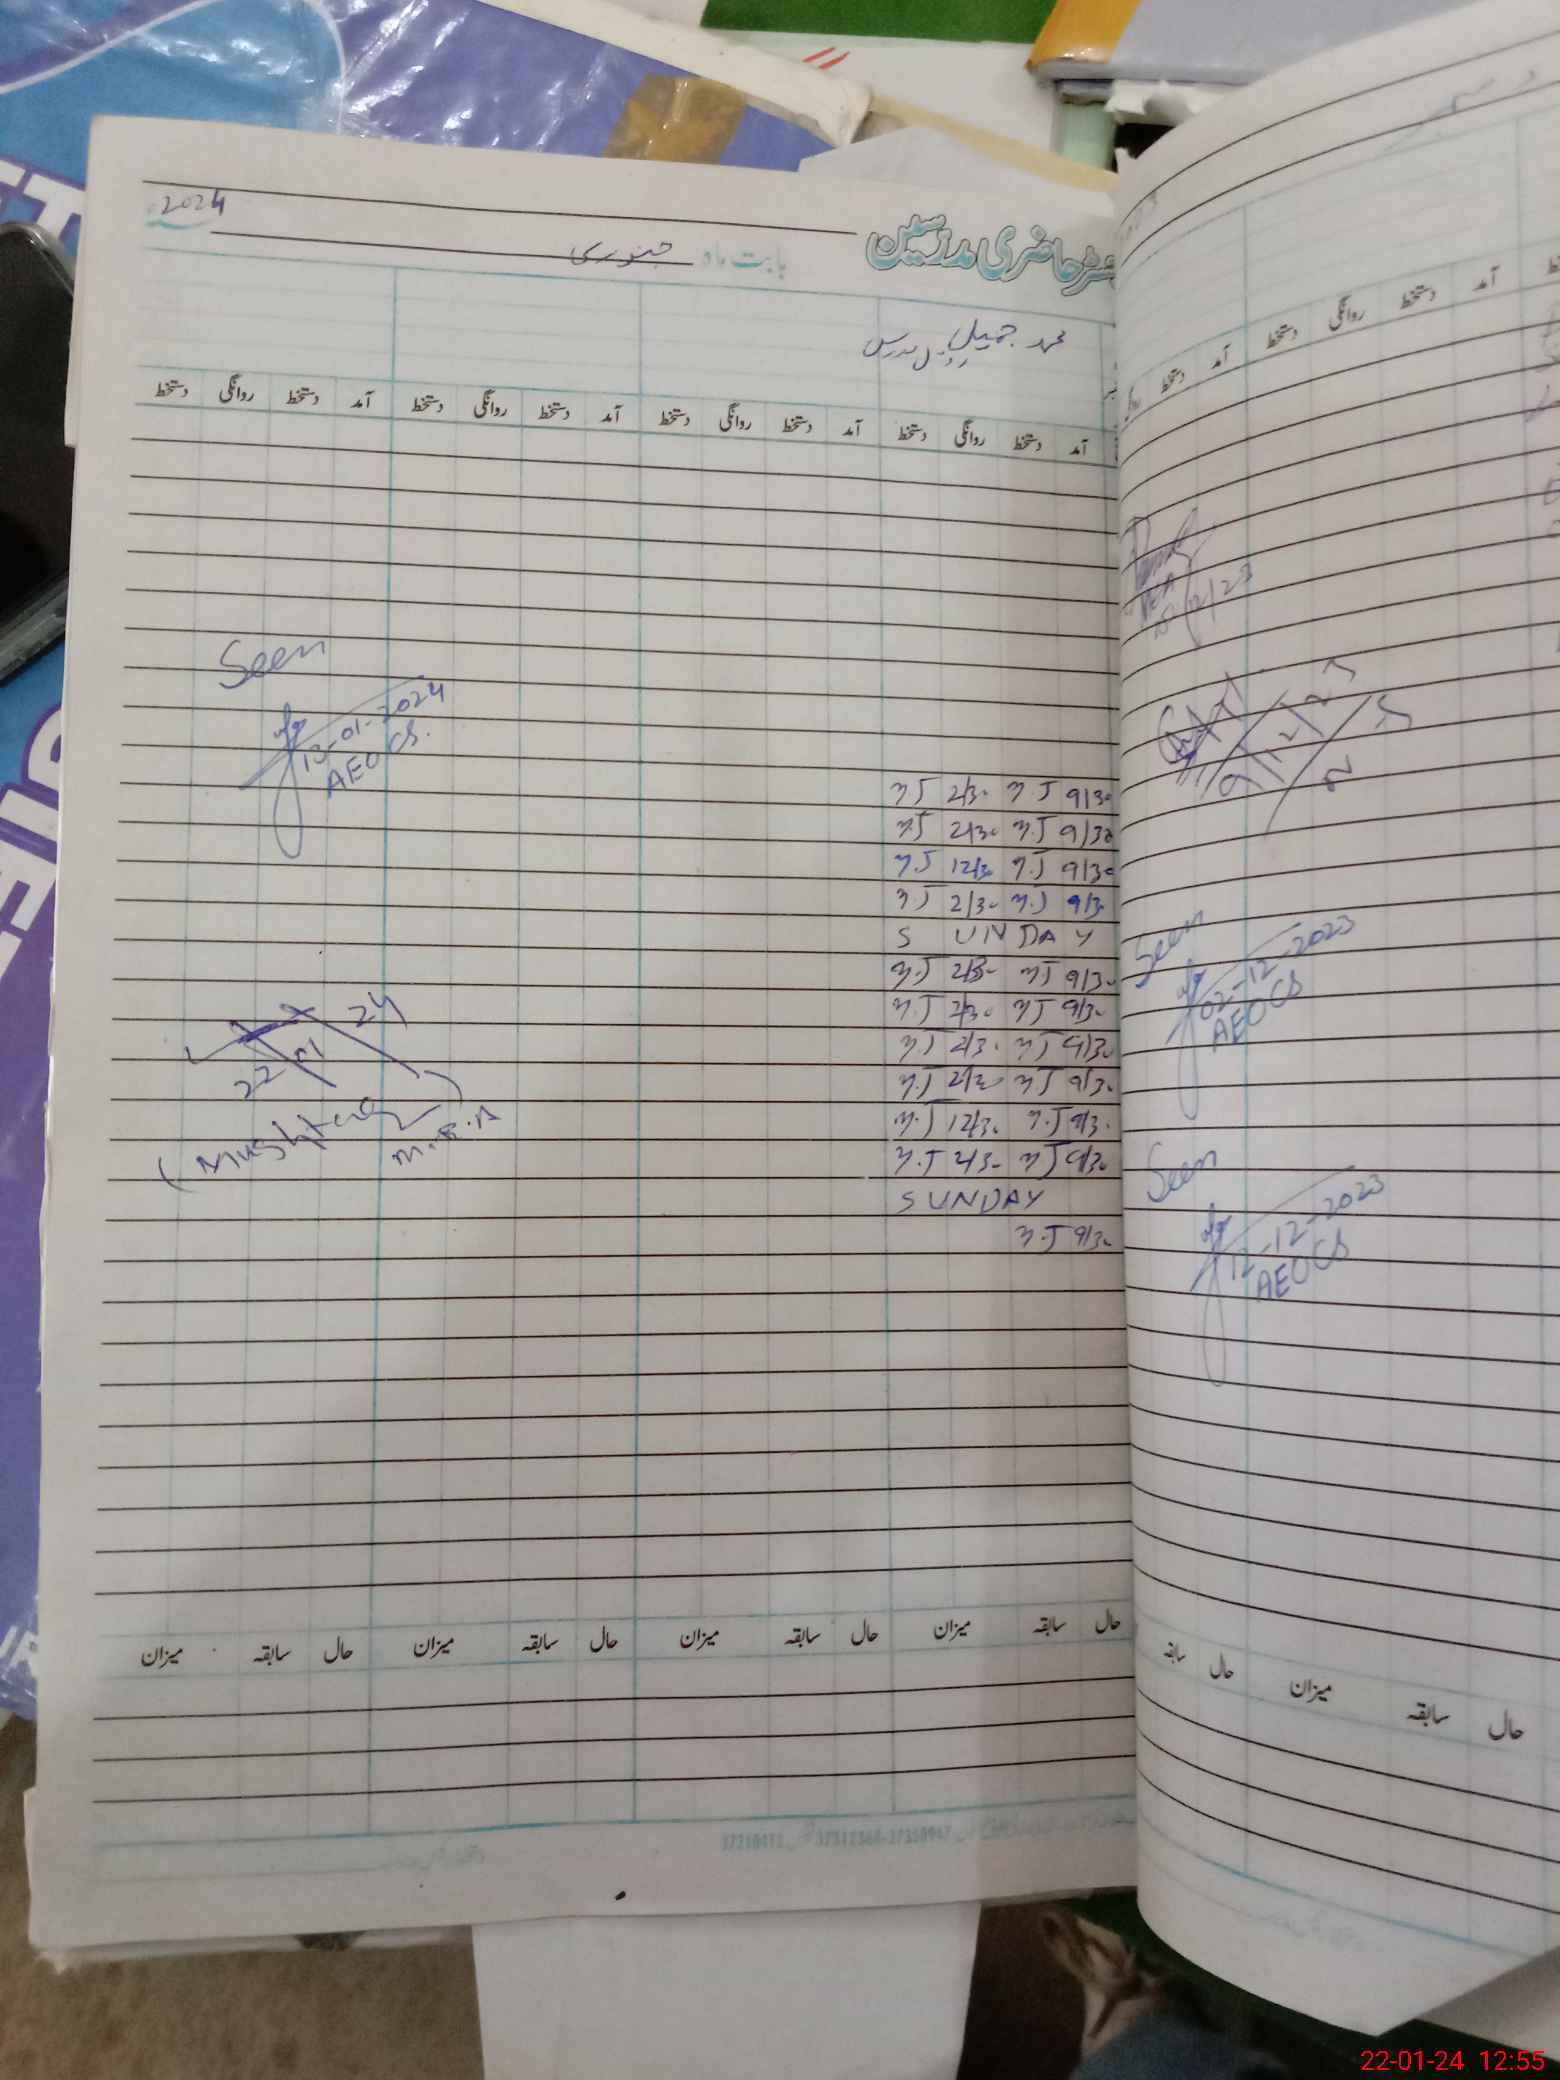 2024
حاضری مدرسین
بابت ماہ جنوری
محمد جمیل
مدرس
آمد دستخط روانگی دستخط آمد دستخط روانگی دستخط آمد دستخط روانگی دستخط آمد دستخط روانگی دستخط
Seen
13-01-2024
AEOCS.
M.J 2/30 M.J 9/30
M.J 2/30 M.J 9/30
M.J 12/30 M.J 9/30
M.J 2/30 M.J 9/30
SUNDAY
M.J 2/30 M.J 9/30
M.J 2/30 M.J 9/30
M.J 2/30 M.J 9/30
M.J 2/30 M.J 9/30
M.J 12/30 M.J 9/30
M.J 2/30 M.J 9/30
SUNDAY
M.J 9/30
22 01 24
(Mushtaq)
M.E.A
حال سابقہ میزان حال سابقہ میزان حال سابقہ میزان حال سابقہ میزان
آمد دستخط روانگی دستخط آمد دستخط
12/23
9/12/23
Seen
02-12-2023
AEOCS
Seen
12-12-2023
AEOCS
حال سابقہ میزان حال سابقہ
22-01-24 12:55